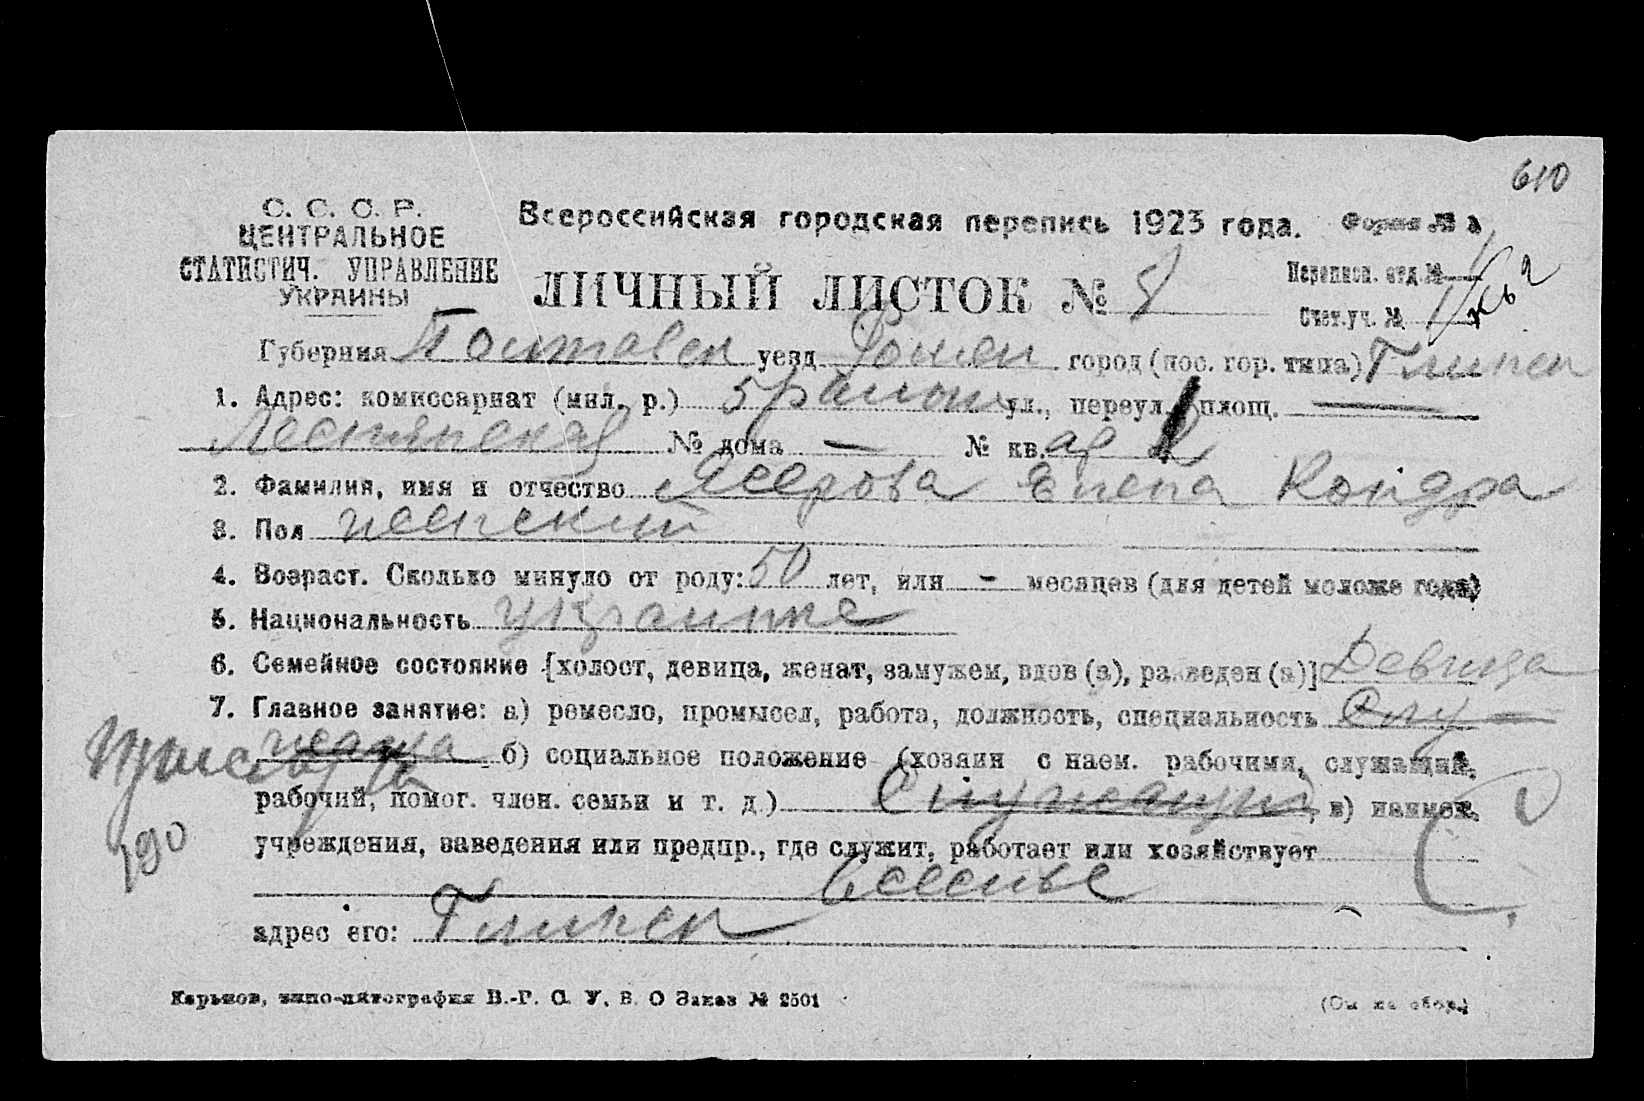 610
С. С. С. Р.
ЦЕНТРАЛЬНОЕ
СТАТИСТИЧ. УПРАВЛЕНИЕ
УКРАИНЫ
Всероссийская городская перепись 1923 года. Форма № а
ЛИЧНЫЙ ЛИСТОК №
Переписн. отд. №
Счет. уч. №
Губерния Полтавск уезд Ромен город (пос. гор. типа) Глинск
1. Адрес: комиссариат (мил. р.) 5 район ул., переул., площ. —
№ дома — № кв.
2. Фамилия, имя и отчество Елена Кондра
3. Пол женский
4. Возраст. Сколько минуло от роду: 50 лет, или - месяцев (для детей моложе года)
5. Национальность украинка
6. Семейное состояние [холост, девица, женат, замужем, вдов (а), разведен (а)] Девица
7. Главное занятие: а) ремесло, промысел, работа, должность, специальность Слу
б) социальное положение (хозяин с наем. рабочими, служащий,
рабочий, помог. член. семьи и т. д.) Служащий, в) наимен.
190
учреждения, заведения или предпр., где служит, работает или хозяйствует
адрес его: Глинск
Харьков, типо-литография В.-Р. С. У. В. О Заказ № 2501
(См на обор.)